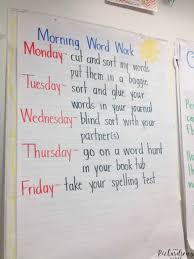 Morning Word Work
Monday- cut and sort my words
put them in a baggie
Tuesday- sort and glue your
words in your journal
Wednesday- blind sort with your
partner(s)
Thursday- go on a word hunt
in your book tub
Friday- take your spelling test